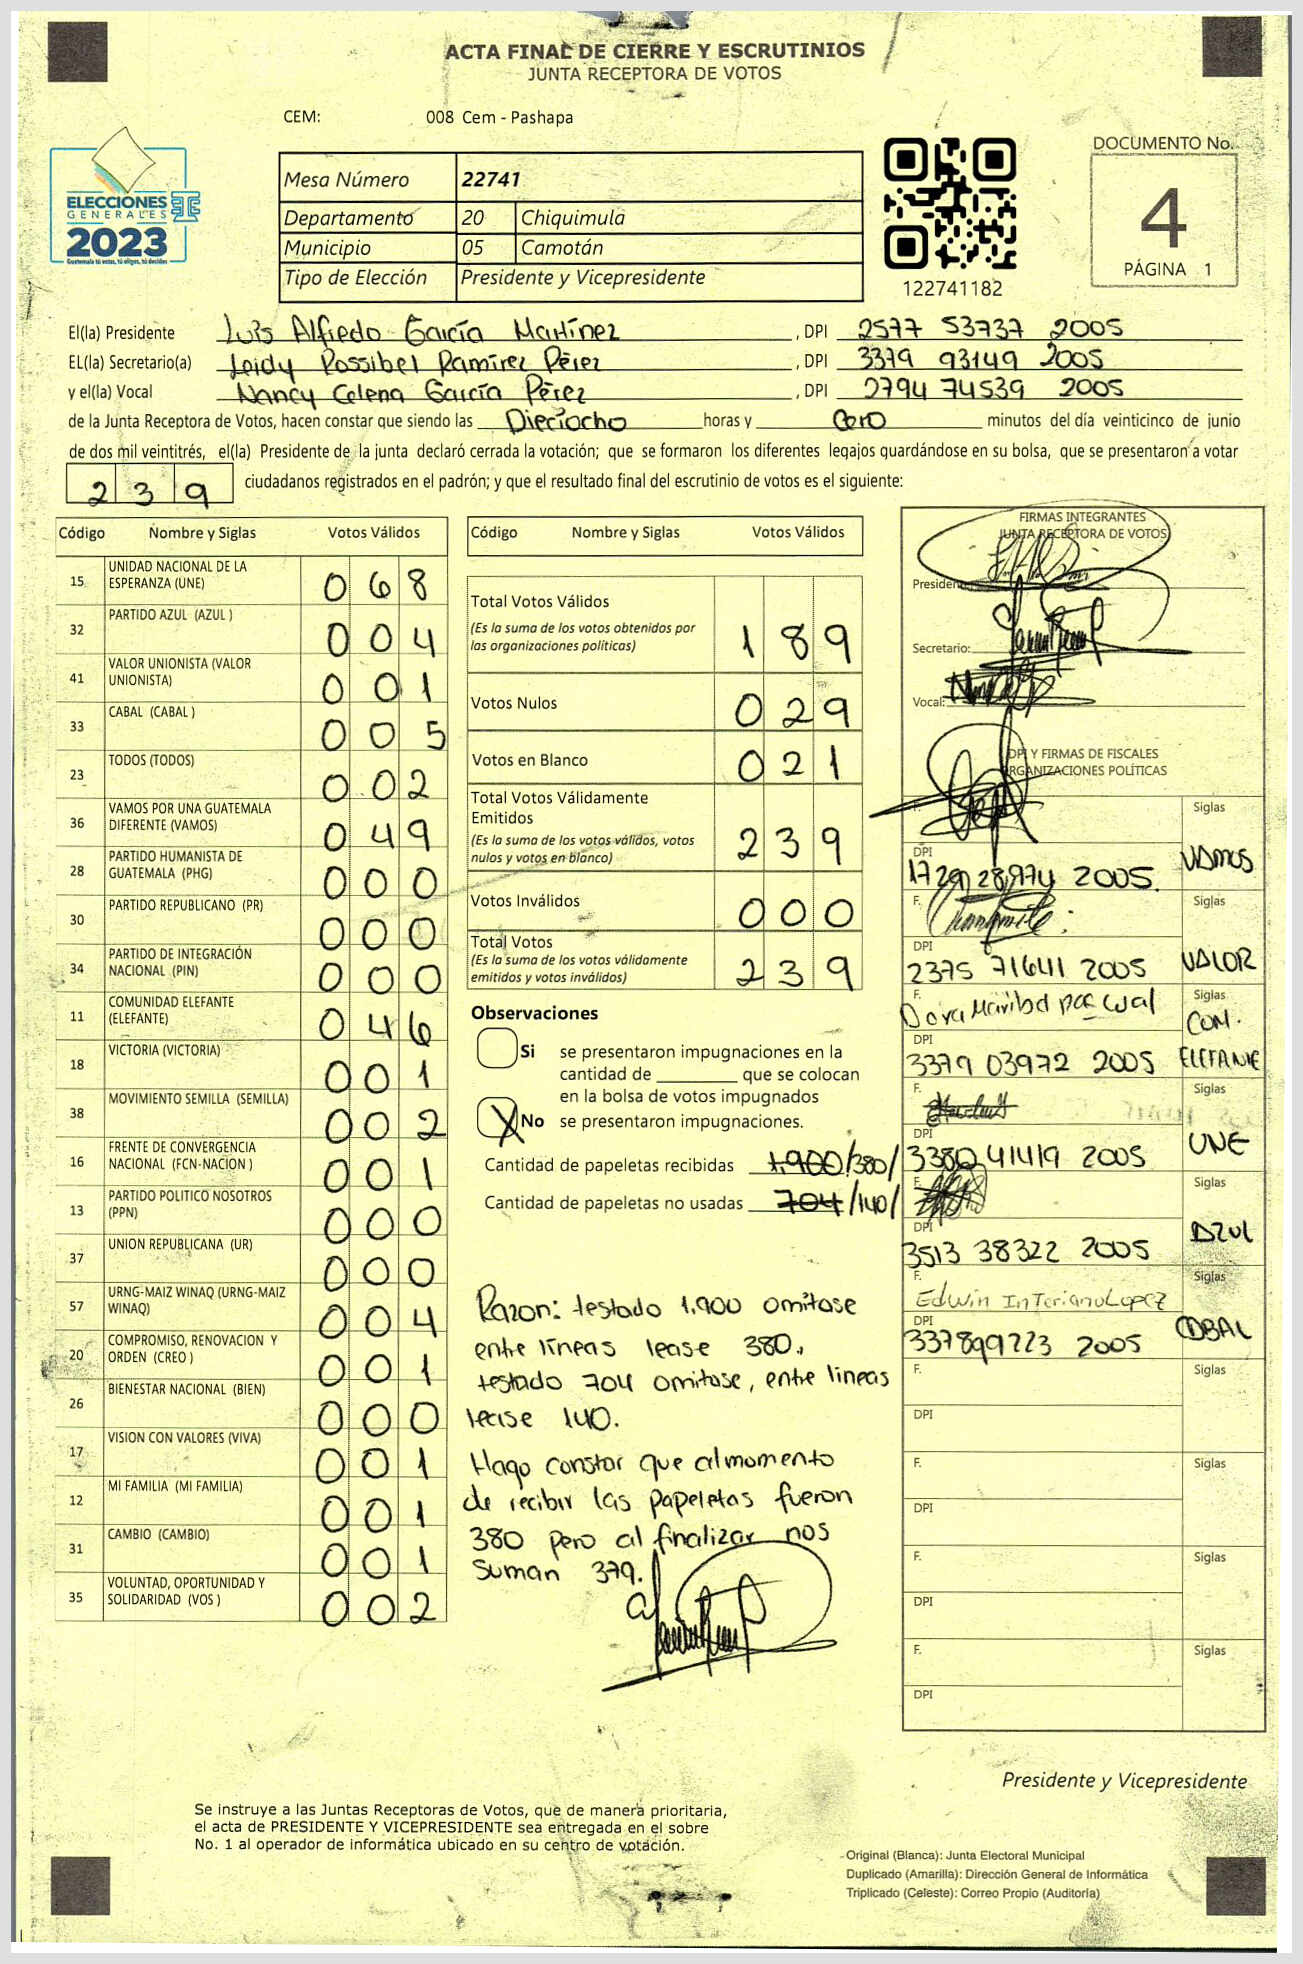 ACTA FINAL DE CIERRE Y ESCRUTINIOS
JUNTA RECEPTORA DE VOTOS
CEM: 008 Cem - Pashapa
ELECCIONES
GENERALES
2023
Guatemala tú votas, tú eliges, tú decides
Mesa Número 22741
Departamento 20 Chiquimula
Municipio 05 Camotán
Tipo de Elección Presidente y Vicepresidente
122741182
DOCUMENTO No.
4
PÁGINA 1
El(la) Presidente Luis Alfredo García Martínez , DPI 2577 53737 2005
EL(la) Secretario(a) Leidy Rossibel Ramírez Pérez , DPI 3379 93149 2005
y el(la) Vocal Nancy Celena García Pérez , DPI 2794 74539 2005
de la Junta Receptora de Votos, hacen constar que siendo las Dieciocho horas y Cero minutos del día veinticinco de junio
de dos mil veintitrés, el(la) Presidente de la junta declaró cerrada la votación; que se formaron los diferentes legajos guardándose en su bolsa, que se presentaron a votar
239 ciudadanos registrados en el padrón; y que el resultado final del escrutinio de votos es el siguiente:
Código Nombre y Siglas Votos Válidos
15 UNIDAD NACIONAL DE LA
ESPERANZA (UNE) 068
32 PARTIDO AZUL (AZUL ) 004
41 VALOR UNIONISTA (VALOR
UNIONISTA) 001
33 CABAL (CABAL ) 005
23 TODOS (TODOS) 002
36 VAMOS POR UNA GUATEMALA
DIFERENTE (VAMOS) 049
28 PARTIDO HUMANISTA DE
GUATEMALA (PHG) 000
30 PARTIDO REPUBLICANO (PR) 000
34 PARTIDO DE INTEGRACIÓN
NACIONAL (PIN) 000
11 COMUNIDAD ELEFANTE
(ELEFANTE) 046
18 VICTORIA (VICTORIA) 001
38 MOVIMIENTO SEMILLA (SEMILLA) 002
16 FRENTE DE CONVERGENCIA
NACIONAL (FCN-NACION ) 001
13 PARTIDO POLITICO NOSOTROS
(PPN) 000
37 UNION REPUBLICANA (UR) 000
57 URNG-MAIZ WINAQ (URNG-MAIZ
WINAQ) 004
20 COMPROMISO, RENOVACION Y
ORDEN (CREO ) 001
26 BIENESTAR NACIONAL (BIEN) 000
17 VISION CON VALORES (VIVA) 001
12 MI FAMILIA (MI FAMILIA) 001
31 CAMBIO (CAMBIO) 001
35 VOLUNTAD, OPORTUNIDAD Y
SOLIDARIDAD (VOS ) 002
Código Nombre y Siglas Votos Válidos
Total Votos Válidos
(Es la suma de los votos obtenidos por
las organizaciones políticas) 189
Votos Nulos 029
Votos en Blanco 021
Total Votos Válidamente
Emitidos
(Es la suma de los votos válidos, votos
nulos y votos en blanco) 239
Votos Inválidos 000
Total Votos
(Es la suma de los votos válidamente
emitidos y votos inválidos) 239
Observaciones
Si se presentaron impugnaciones en la
cantidad de ________ que se colocan
en la bolsa de votos impugnados
X No se presentaron impugnaciones.
Cantidad de papeletas recibidas 1,900/380/
Cantidad de papeletas no usadas 704/140/
Razon: testado 1,900 omitase
entre líneas lease 380,
testado 704 omitase, entre lineas
lease 140.
Hago constar que al momento
de recibir las papeletas fueron
380 pero al finalizar nos
suman 379.
FIRMAS INTEGRANTES
JUNTA RECEPTORA DE VOTOS
Presidente:
Secretario:
Vocal:
DPI Y FIRMAS DE FISCALES
ORGANIZACIONES POLÍTICAS
F. Siglas
DPI VAMOS
1729 28974 2005.
F. Siglas
DPI VALOR
2375 71641 2005
F. Siglas
Dora Maribel pascual COM.
DPI ELEFANTE
3379 03972 2005
F. Siglas
DPI UNE
3380 41419 2005
F. Siglas
DPI AZUL
3513 38322 2005
F. Siglas
Edwin InTeriano Lopez
DPI CABAL
337899223 2005
F. Siglas
DPI
F. Siglas
DPI
F. Siglas
DPI
F. Siglas
DPI
Presidente y Vicepresidente
Se instruye a las Juntas Receptoras de Votos, que de manera prioritaria,
el acta de PRESIDENTE Y VICEPRESIDENTE sea entregada en el sobre
No. 1 al operador de informática ubicado en su centro de votación.
Original (Blanca): Junta Electoral Municipal
Duplicado (Amarilla): Dirección General de Informática
Triplicado (Celeste): Correo Propio (Auditoría)